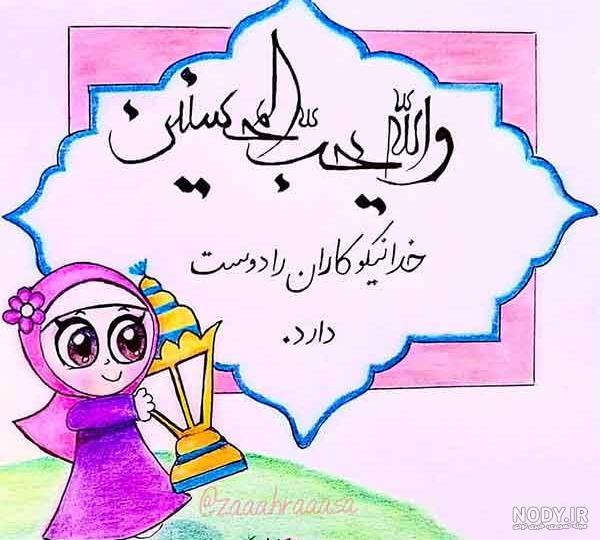 والله یحب المحسنین
خدا نیکوکاران را دوست
دارد.
@zaaahraaasa
NODY.IR